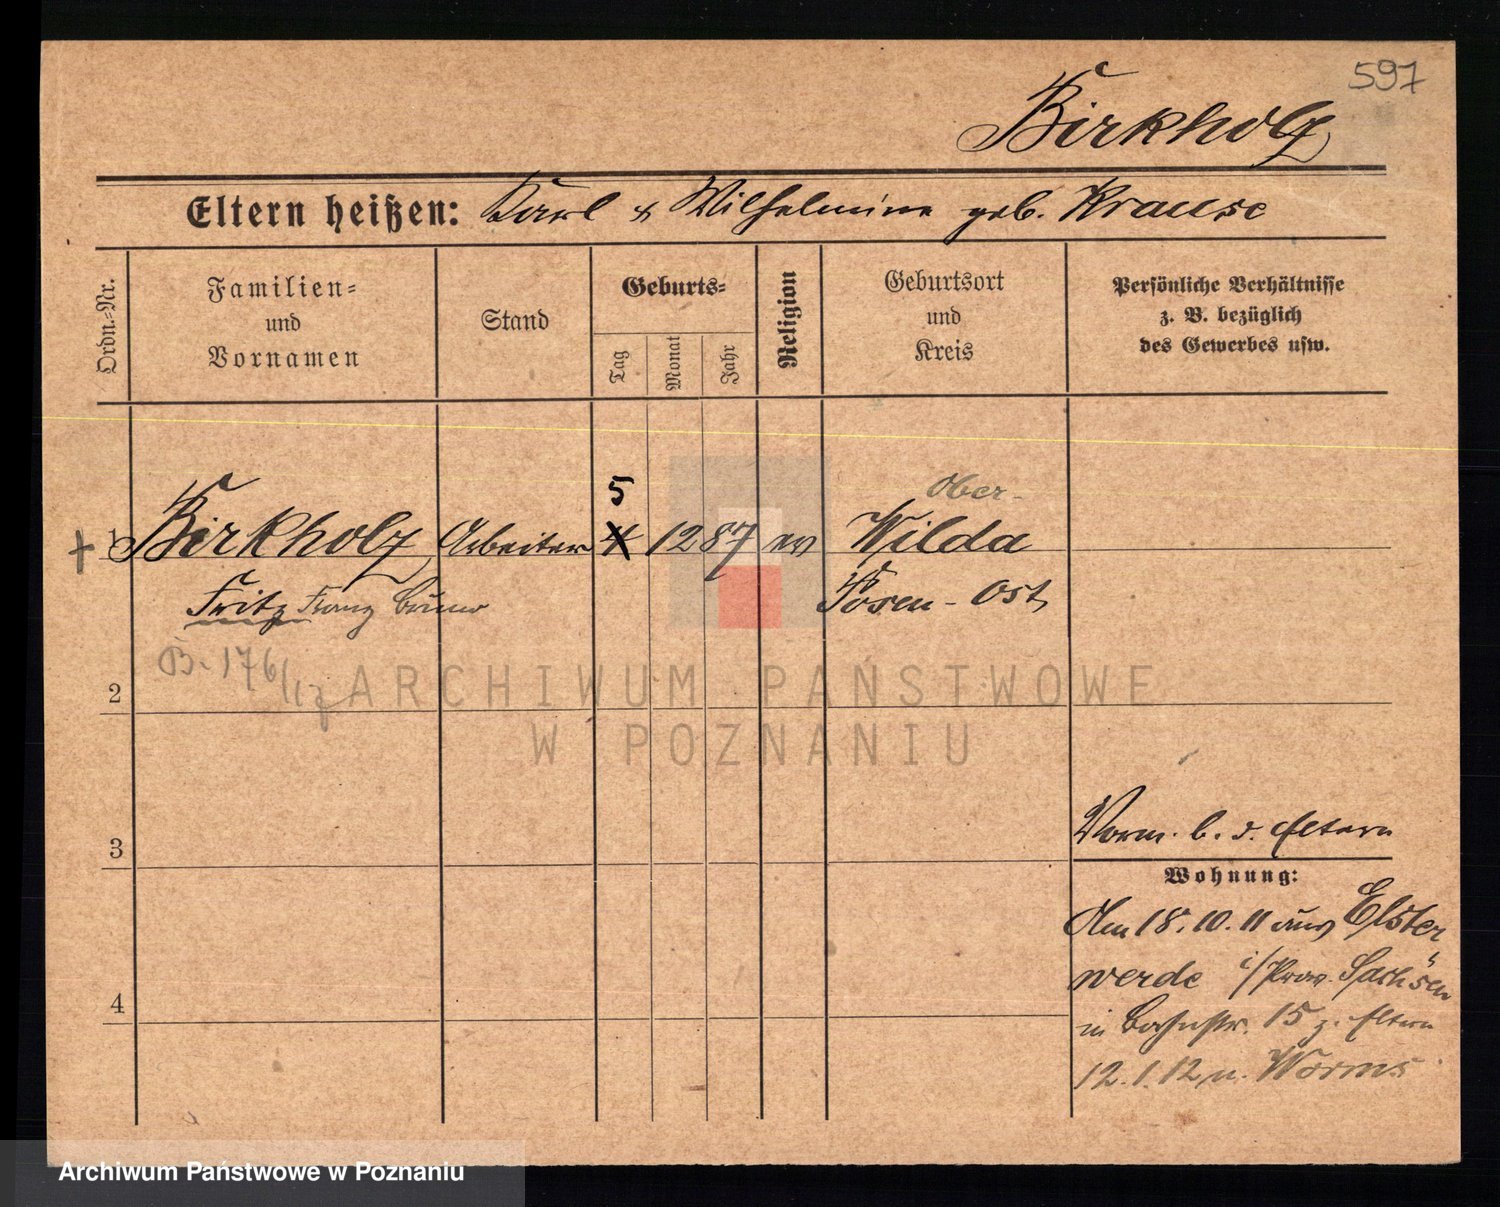 597
Birkholz
Eltern heißen: Karl & Wilhelmine geb. Krause
Ordn.-Nr.
Familien-
und
Vornamen
Stand
Geburts-
Tag
Monat
Jahr
Religion
Geburtsort
und
Kreis
Persönliche Verhältnisse
z. B. bezüglich
des Gewerbes usw.
5
Ober-
+ 1 Birkholz Arbeiter 4 12 87 ev Wilda
Fritz Franz Bruno Posen-Ost
B. 176/17
2
ARCHIWUM PAŃSTWOWE
W POZNANIU
3
Vorm. b. d. Eltern
Wohnung:
Am 18.10.11 aus Elster
werde i/Prov. Sachsen
4
in Bahnstr. 15 z. Eltern
12.1.12 n. Worms
Archiwum Państwowe w Poznaniu